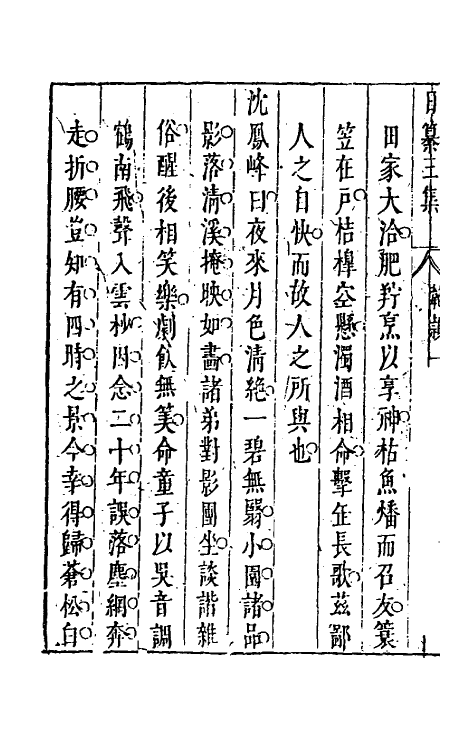 田家大洽肥羜烹以享神枯魚燔而召友簑
笠在戸桔槹空懸濁酒相命擊缶長歌茲鄙
人之自快而故人之所與也
沈鳳峰曰夜來月色清絶一碧無翳小園諸品
影落清溪掩映如畵諸弟對影團坐談諧雜
俗醒後相笑樂劇飲無筭命童子以吳音調
鶴南飛聲入雲杪因念二十年誤落塵網奔
走折腰豈知有四時之景今幸得歸蒼松白